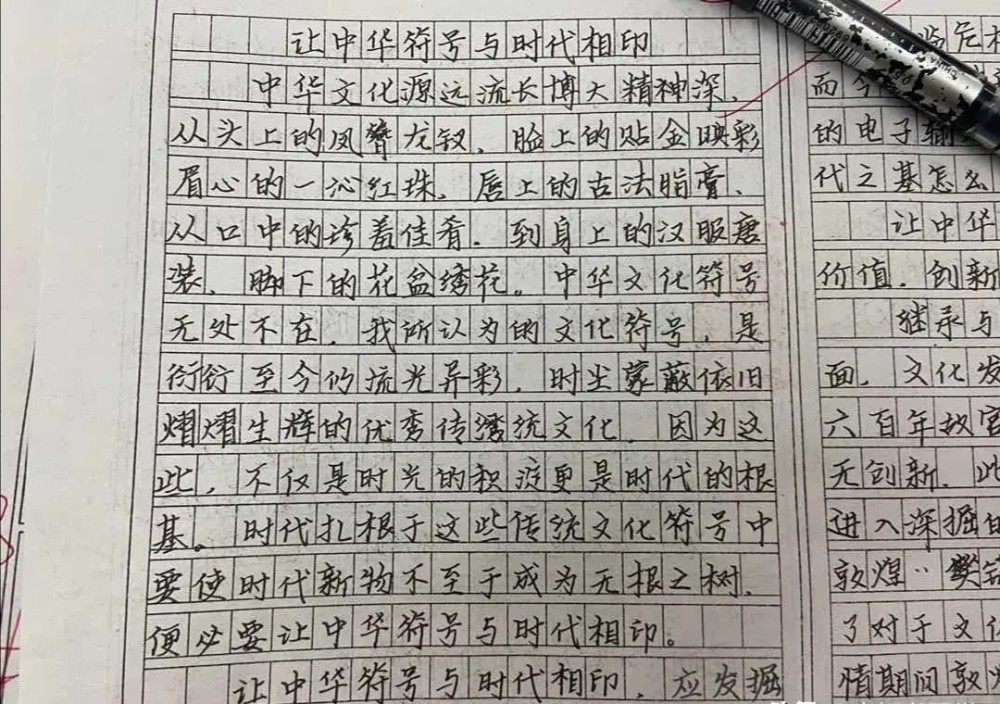 让中华符号与时代相印
中华文化源远流长博大精神深,
从头上的凤簪龙钗、脸上的贴金映彩
眉心的一沁红珠、唇上的古法脂膏、
从口中的珍羞佳肴.到身上的汉服唐
装、脚下的花盆绣花。中华文化符号
无处不在.我所认为的文化符号,是
衍衍至今仍流光异彩,时尘蒙蔽依旧
熠熠生辉的优秀传统文化,因为这
些,不仅是时光的积淀更是时代的根
基。时代扎根于这些传统文化符号中
要使时代新物不至于成为无根之树,
便必要让中华符号与时代相印。
让中华符号与时代相印,应发掘
而今
的电子
代之基怎么
让中华
价值,创新
继承与
面,文化发
六百年故宫
无创新.此
进入深掘
敦煌··樊
了对于文化
情期间敦